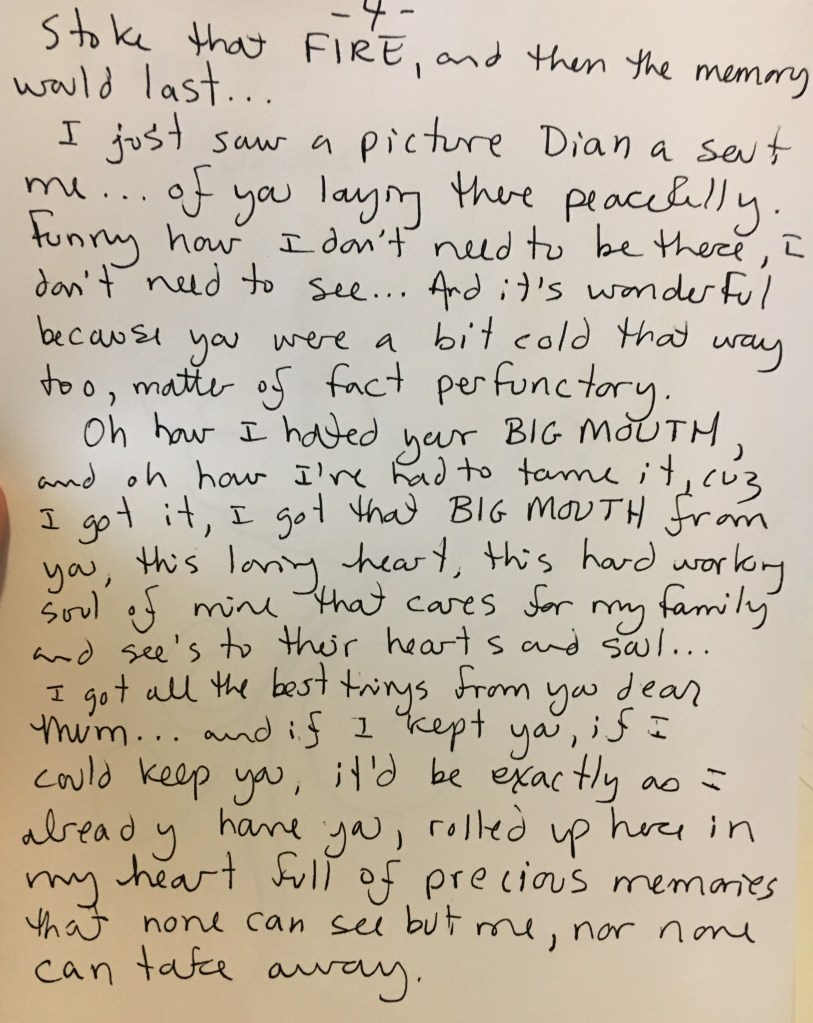 - 4 -
Stoke that FIRE, and then the memory
would last...
I just saw a picture Diana sent
me... of you laying there peacefully.
Funny how I don't need to be there, I
don't need to see... And it's wonderful
because you were a bit cold that way
too, matter of fact perfunctory.
Oh how I hated your BIG MOUTH,
and oh how I've had to tame it, cuz
I got it, I got that BIG MOUTH from
you, this loving heart, this hard working
soul of mine that cares for my family
and see's to their hearts and soul...
I got all the best things from you dear
Mum... and if I kept you, if I
could keep you, it'd be exactly as I
already have you, rolled up here in
my heart full of precious memories
that none can see but me, nor none
can take away.